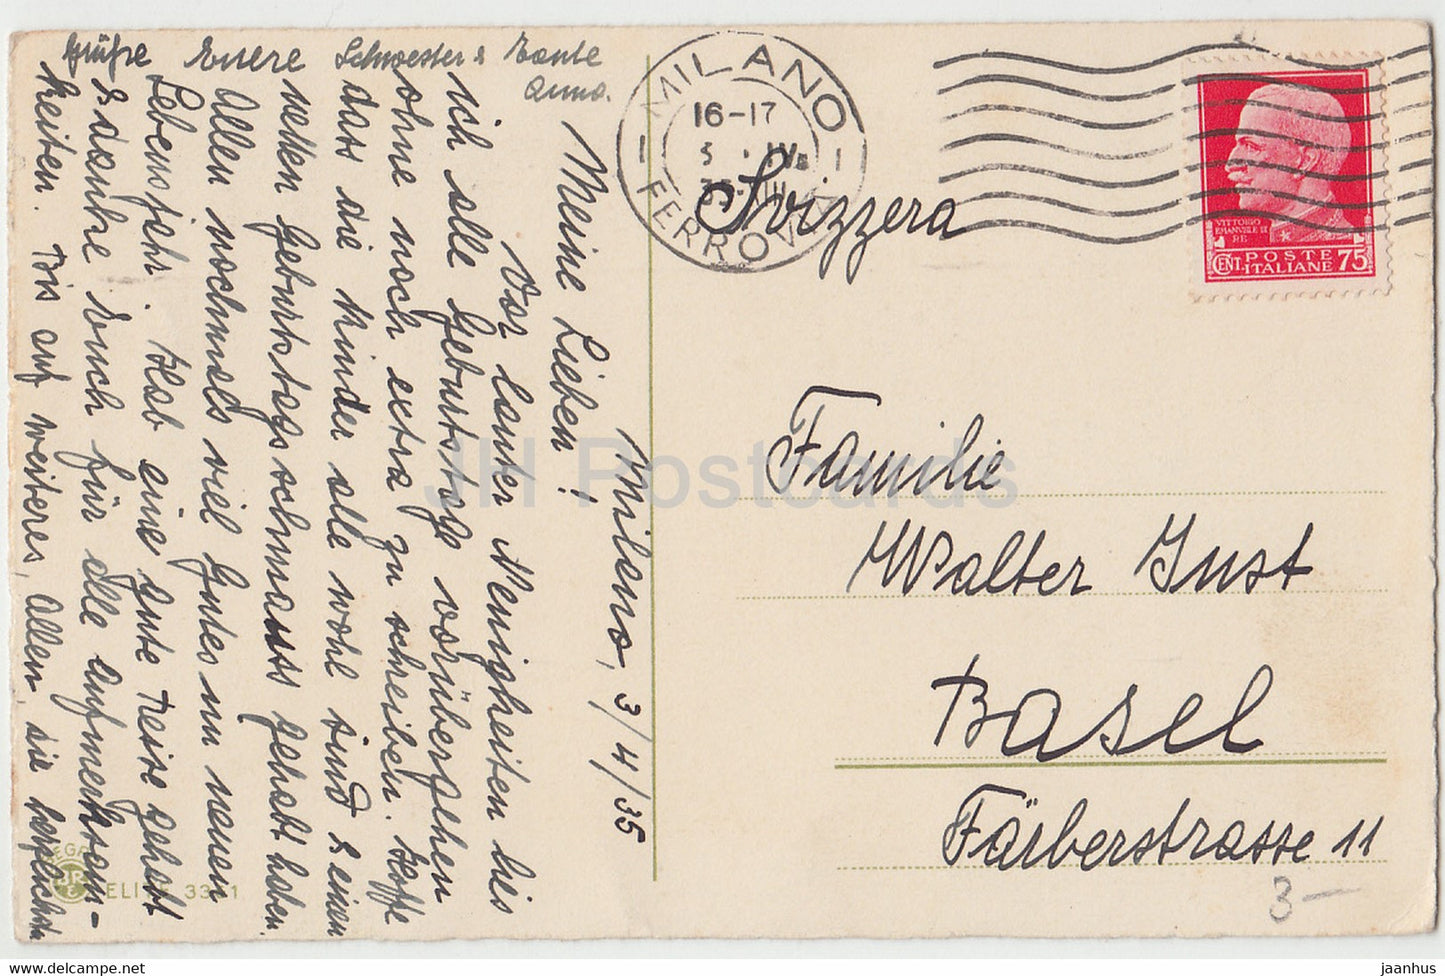 Milano, 3/4/35
Meine Lieben!
Vor lauter Neuigkeiten bis
ich alle Geburtstage vorübergehen
ohne noch extra zu schreiben. Hoffe
dass die Kinder alle wohl sind & einen
netten Geburtstagsschmauss gehabt haben.
Allen nochmals viel Gutes im neuen
Lebensjahr. Hab eine gute Reise gehabt
& danke Euch für alle Aufmerksam-
keiten. Bis auf weiteres, Allen, die herzlichsten
Grüsse Euere Schwester & Tante
Anna.
MILANO
16-17
5 . IV
35-XIII
FERROVIA
VITTORIO
EMANUELE III
RE
POSTE
CENT. ITALIANE 75
Svizzera
Familie
Walter Just
Basel
Färberstrasse 11
3 —
JR
ELITE
JH Postcards
jaanhus @ www.delcampe.net